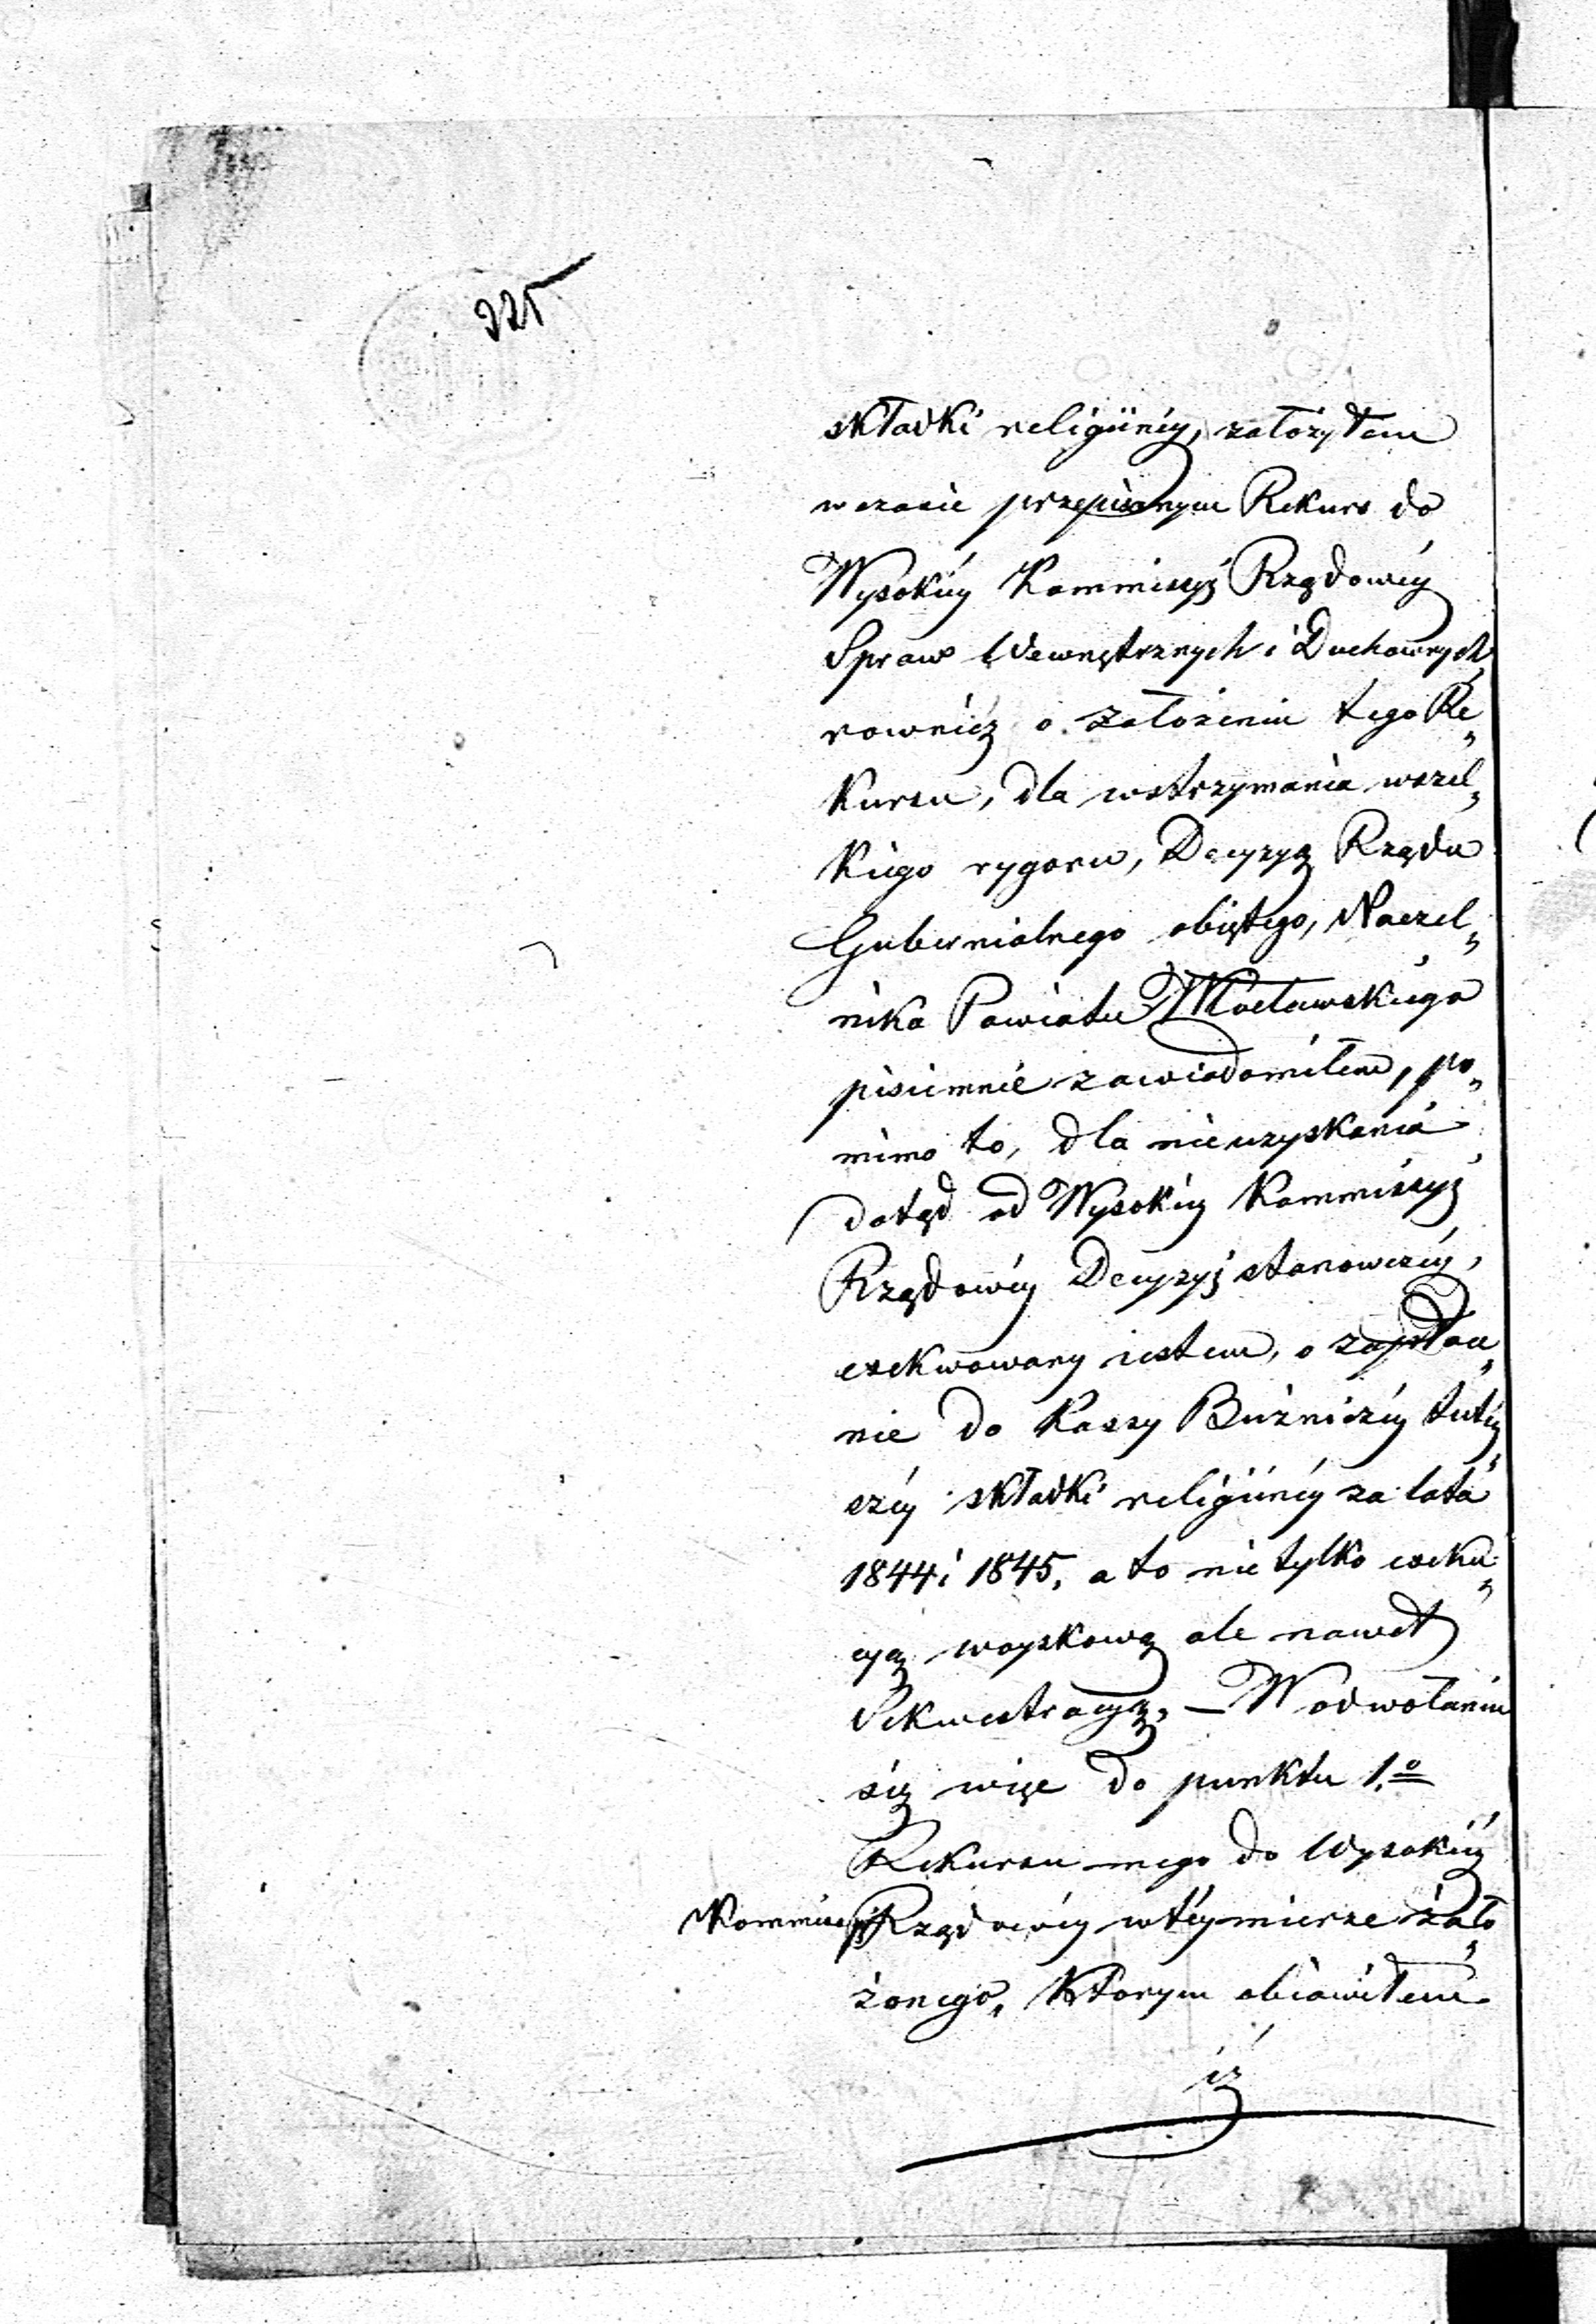 225
składki religiiney, założyłem
w czasie przepisanym Rekurs do
Wysokiéy Kommissyi Rządowéy
Spraw Wewnętrznych i Duchownych,
rownież o założeniu tego Re„
kursu, dla wstrzymania wszel„
kiego rygoru, Decyzyą Rządu
Gubernialnego obiętego, Naczel„
nika Powiatu Włocławskiego
pisiemnie zawiadomiłem, po„
mimo to, dla nieuzyskania
dotąd od Wysokiéy Kommissyi
Rządowéy Decyzyi stanowczéy,
exekwowany iestem, o zapłace„
nie do Kassy Bużniczéy tutéy„
széy składki religiinéy za lata
1844 i 1845, a to nie tylko exeku„
cyą woyskową ale nawet
Sekwestracyą, — W odwołaniu
się więc do punktu 1.o
Rekursu mego do Wysokiéy
Kommissyi Rządowéy w téy mierze zało„
żonego, którym obiawiłem
iż